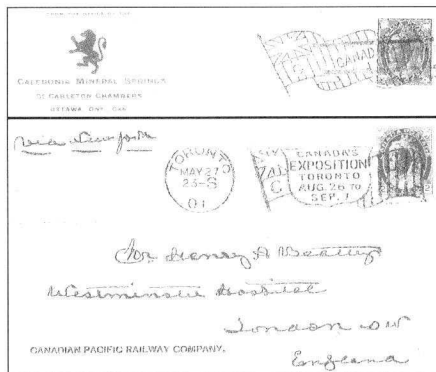 FROM THE OFFICE OF THE
CALEDONIA MINERAL SPRINGS
CARLETON CHAMBERS
OTTAWA, ONT., CAN.
CANADA
via New york
TORONTO
MAY 27
23-S
01
C
CANADA'S
EXPOSITION
TORONTO
AUG. 26 TO
SEP. 7
Dr. Henry A Beatty
Westminster Hospital
London SW
England
CANADIAN PACIFIC RAILWAY COMPANY.